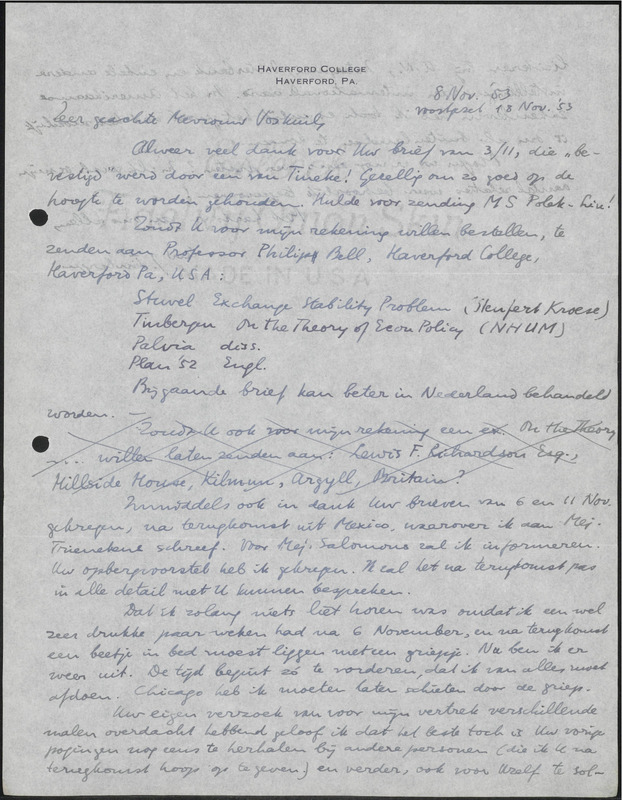 HAVERFORD COLLEGE
HAVERFORD, PA.
8 Nov. '53
voortgezet 18 Nov. '53
Zeer geachte Mevrouw Voskuil,
Alweer veel dank voor Uw brief van 3/11, die „be-
vestigd" werd door een van Tineke! Gezellig om zo goed op de
hoogte te worden gehouden. Hulde voor zending MS Polak-Liu!
Zoudt U voor mijn rekening willen bestellen, te
zenden aan Professor Philip Bell, Haverford College,
Haverford Pa, USA:
Stuvel Exchange Stability Problem (Stenfert Kroese)
Tinbergen On the Theory of Econ Policy (NHUM)
Palvia diss.
Plan '52 Engl.
Bijgaande brief kan beter in Nederland behandeld
worden. —
Zoudt U ook voor mijn rekening een ex. On the Theory
.... willen laten zenden aan: Lewis F. Richardson Esq.,
Hillside House, Kilmun, Argyll, Britain?
Inmiddels ook in dank Uw brieven van 6 en 11 Nov.
gekregen, na terugkomst uit Mexico, waarover ik aan Mej.
Trienekens schreef. Voor Mej. Salomons zal ik informeren.
Uw opbergvoorstel heb ik gekregen. Ik zal het na terugkomst pas
in alle detail met U kunnen bespreken.
Dat ik zolang niets liet horen was omdat ik een wel
zeer drukke paar weken had na 6 November, en na terugkomst
een beetje in bed moest liggen met een griepje. Nu ben ik er
weer uit. De tijd begint zó te vorderen, dat ik van alles moet
afdoen. Chicago heb ik moeten laten schieten door de griep.
Uw eigen verzoek van voor mijn vertrek verschillende
malen overdacht hebbend geloof ik dat het beste toch is Uw vorige
pogingen nog eens te herhalen bij andere personen (die ik U na
terugkomst hoop op te geven) en verder, ook voor Uzelf te sol-
MADE IN USA